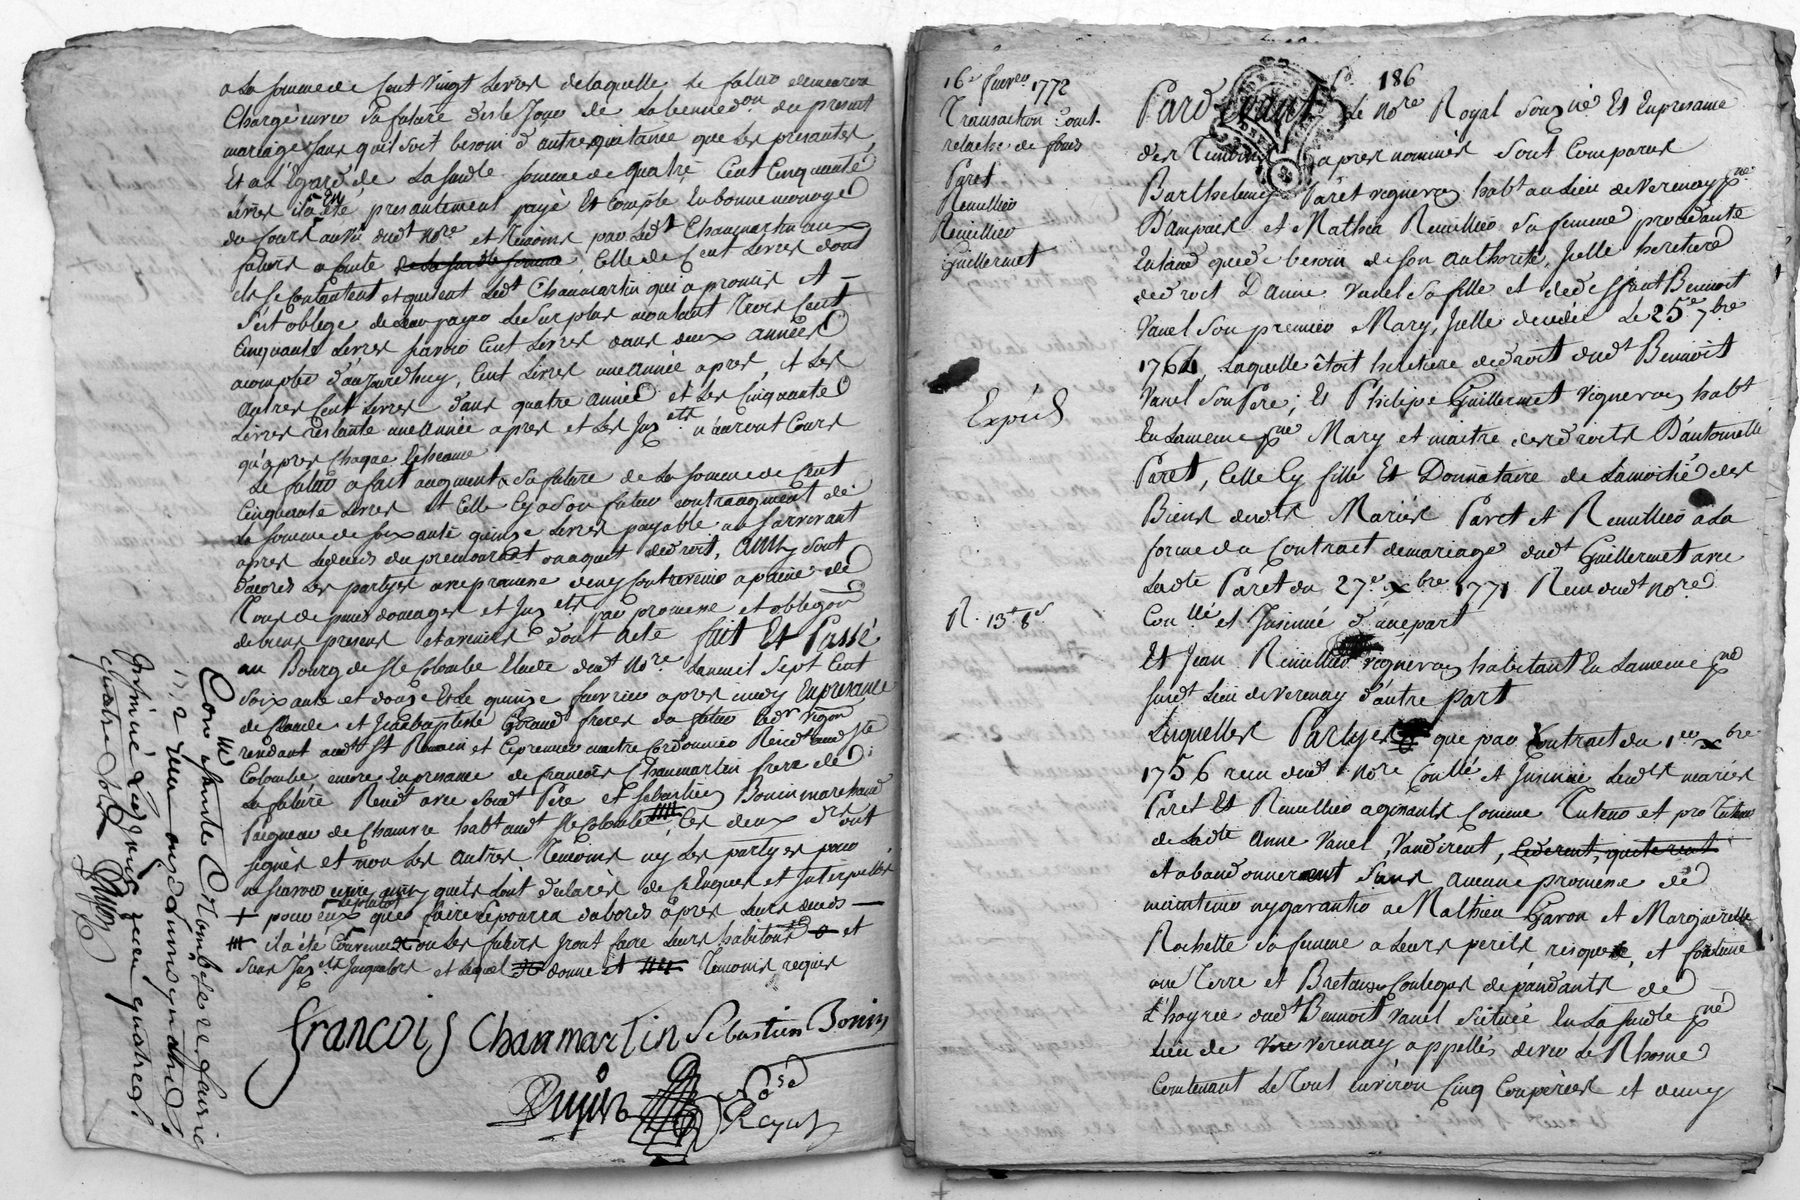 a La somme de Cent vingt Livres de laquelle le futur demeurera
Chargé envers sa future dès le Jour de La benned.on du present
mariage sans qu'il soit besoin d'autre quitance que Les presantes,
Et a L'Egard de La susd.te somme de quatre Cent Cinquante
Livres il a été presantement payé Et compté En bonne monoye
du Cours au vû dud.t No.re et Temoins par Led.t Chanmartin aux
futurs a Conte de La susd.te somme, Celle de Cent Livres dont
ils se Contantent et quitent Led.t Chanmartin qui a promis et
s'est oblegé de Leur payer Le Surplus montant Trois Cent
Cinquante Livres scavoir Cent Livres dans deux années
a compter d'aujourd'huy, Cent Livres une année apres, et Les
Autres Cent Livres dans quatre années et Les Cinquante
Livres restante une année apres et Les Jnt.ets n'auront Cours
qu'apres Chaque Echeance
Le futur a fait augment a sa future de La somme de Cent
Cinquante Livres et Elle Cy a son futur contraugment de
La somme de soixante quinze Livres payable au survivant
apres Le deces du premourant
d'acord Les partyes avec promesse de ny Contrevenir a peine de
Tous depens domages et Jnt.ets par promesse et obligaon
de biens presens et avenirs dont acte fait Et Passé
au Bourg de S.te Colombe Etude dud.t No.re Lan mil Sept Cent
soixante et douze Et Le quinze fevrier apres midy En presance
de Claude et Jean baptiste Giraud freres du futur
rendant aud.t S.t Romain et Cyprien maitre Cordonnier Resid.t aud. S.te
Colombe encore En presance de françois Chanmartin frere de
La future Resid.t avec Sond.t Pere et Sebastien Bonin marchand
Peigneur de Chanvre hab.t aud.t S.te Colombe, Ces deux d.rs ont
signés et non Les autres Temoins ny Les partyes pour
ne scavoir ecrire ainsy quils L'ont declarés de ce Enquis et Interpellés
+ pour eux que faire se pourra dabord apres Leurs deces
il a été Convenu ou Les futurs front faire Leurs habitons et
Sans Jnt.ets Jusqualors et Lequel donne et Temoins requis
françois Chanmartin Sebastien Bonin
Dujas
Con.llé a Sainte Colombe Le 28 fevrier
1772 Reçu onze Livres
Insinué Led. Jour reçu quatre L.
quatre sols
16.e fevrier 1772
Transaction Cont.
relache de fonds
Paret
Remillieu
Remillieu
Guillermet
Expédié
R. 13.# 8.s
f.o 186
Pardevant Le No.re Royal Soussigné Et En presance
des Temoins apres nommés Sont Comparus
Barthelemy Paret vigneron hab.t au Lieu de Verenay p.sse
D'ampuis et Mathia Remillieu sa femme procedante
En tant que de besoin de son authorité, Jcelle heretiere
de droit D'Anne Vanel sa fille et de deffunt Benoit
Vanel son premier Mary, Jcelle decedée Le 25.e 7.bre
1764, Laquelle étoit heretiere de droit dud.t Benoît
Vanel son Pere; Et Philipe Guillermet Vigneron hab.t
En La meme p.sse Mary et maitre des droits D'antoinette
Paret, Celle Cy fille Et Donnataire de La moitié des
Biens desd.ts Mariés Paret et Remillieu a La
forme du Contract de mariage dud.t Guillermet avec
Lad.te Paret du 27.e x.bre 1771 Reçu dud.t No.re
Con.llé et Jnsinué d'une part
Et Jean Remillieu vigneron habitant En La meme p.sse
susd.t Lieu de Verenay d'autre part
Lesquelles Partyes que par Contract du 1.er x.bre
1756 reçu dud.t No.re Con.llé et Jnsinué Lesd.ts mariés
Paret Et Remillieu agissants Comme Tuteur et pro Tuteur
de Lad.te Anne Vanel, Vandirent, Cederent, quiterent
et abandonnerent sans aucune promesse de
maintenir ny garantir a Mathieu Garon et Marguerite
Rochette sa femme a Leurs perils, risques, et fortune
une Terre et Bretau Contigus dependants de
L'hoyrie dud.t Benoit Vanel située En La susd.te p.sse
Lieu de Verenay appellés devers Le Rhosne
Contenant Le Tout Environ Cinq Couperées et demy